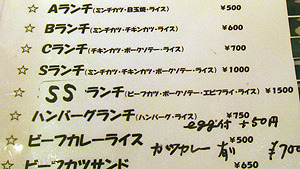 ☆ Aランチ(ミンチカツ・目玉焼・ライス) ¥500
☆ Bランチ(ミンチカツ・チキンカツ・ライス) ¥600
☆ Cランチ(チキンカツ・ポークソテー・ライス) ¥700
☆ Sランチ(ミンチカツ・チキンカツ・ポークソテー・ライス) ¥1000
☆ SS ランチ(ビーフカツ・ポークソテー・エビフライ・ライス) ¥1500
☆ ハンバーグランチ(ハンバーグ・ライス) ¥750
egg付 +50円
☆ ビーフカレーライス ¥500
カツカレー 有り ¥700
☆ ビーフカツサンド ¥650